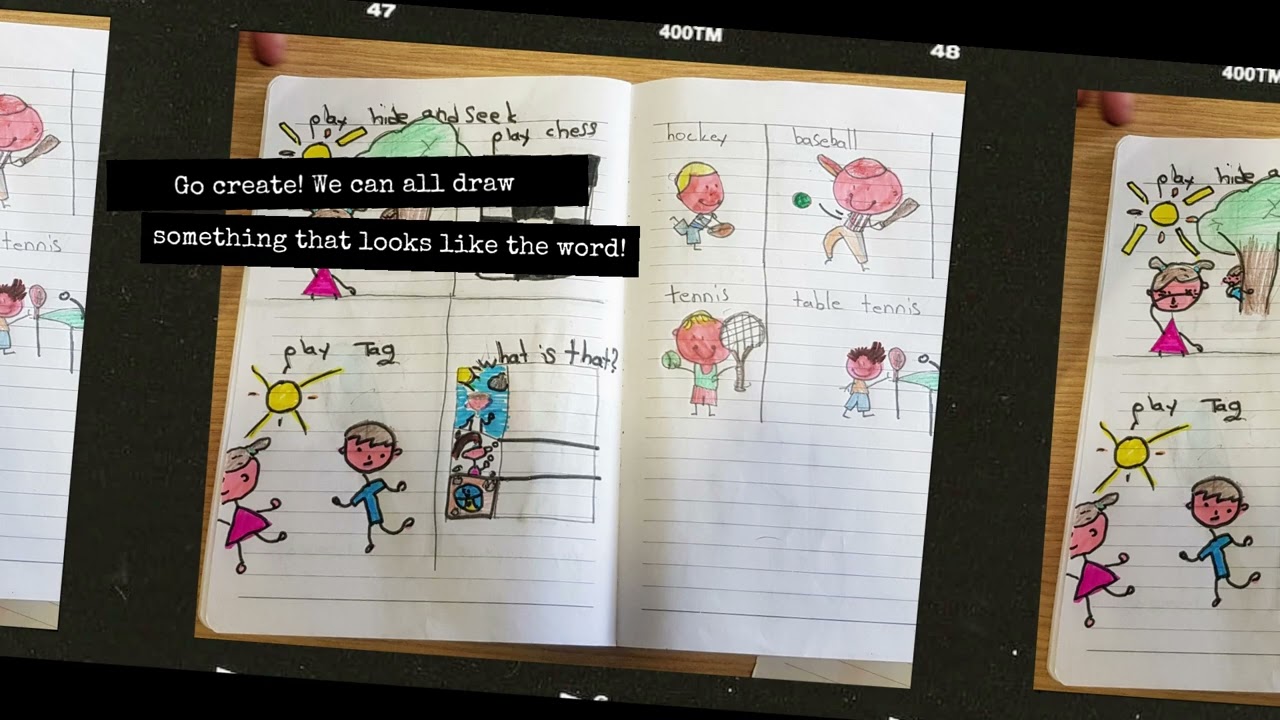 47
400TM
48
400TM
play hide and seek
play chess
Go create! We can all draw
something that looks like the word!
play Tag
hat is that?
hockey
baseball
tennis
table tennis
tennis
play hide a
play Tag